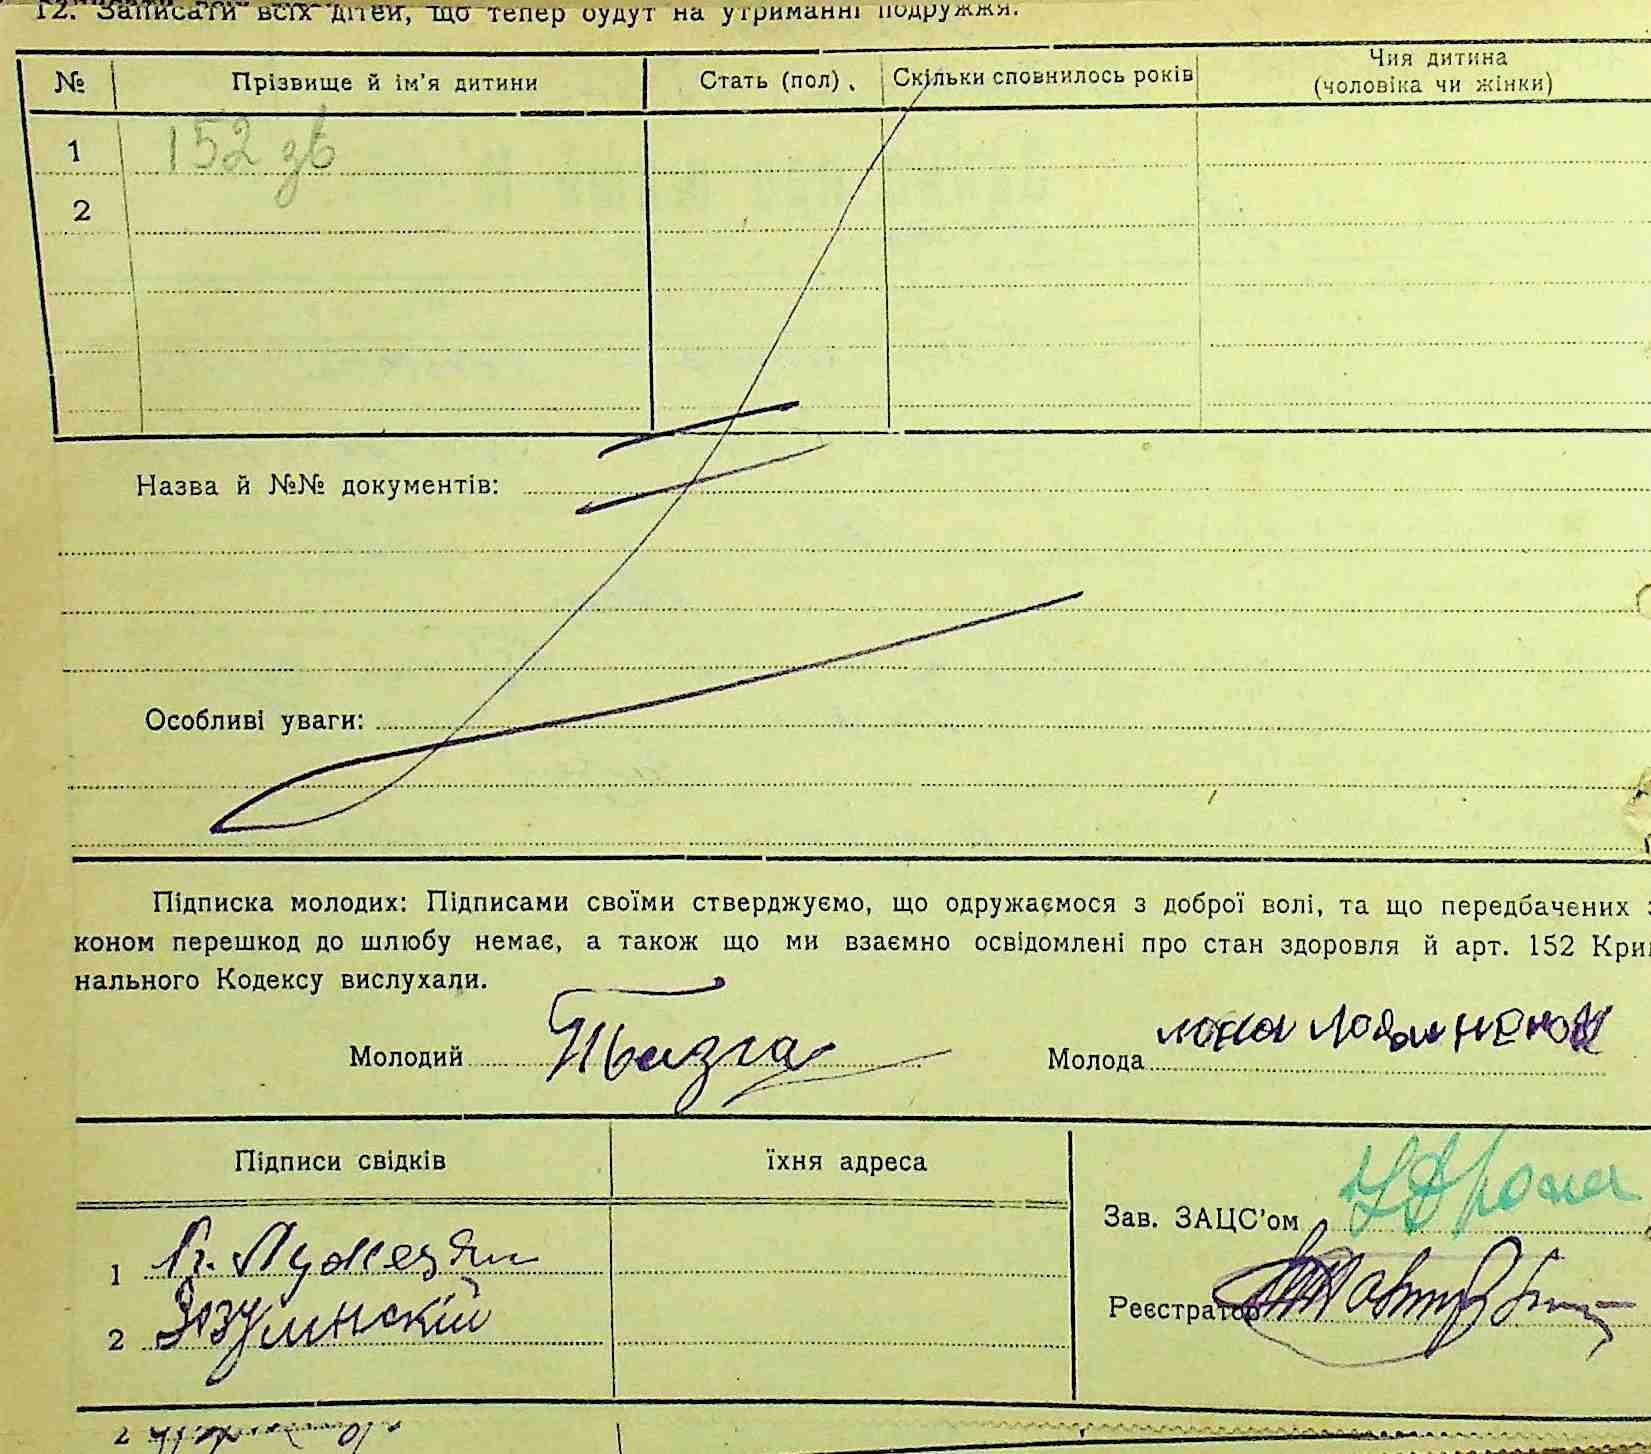 12. Записати всіх дітей, що тепер будут на утриманні подружжя.
№ Прізвище й ім'я дитини Стать (пол) Скільки сповнилось років Чия дитина (чоловіка чи жінки)
1 152 зв
2
Назва й №№ документів:
Особливі уваги:
Підписка молодих: Підписами своїми стверджуємо, що одружаємося з доброї волі, та що передбачених з
коном перешкод до шлюбу немає, а також що ми взаємно освідомлені про стан здоровля й арт. 152 Крим
нального Кодексу вислухали.
Молодий Молода
Підписи свідків їхня адреса
Зав. ЗАЦС'ом
1
Реєстратор
2 Зозулинскій
2